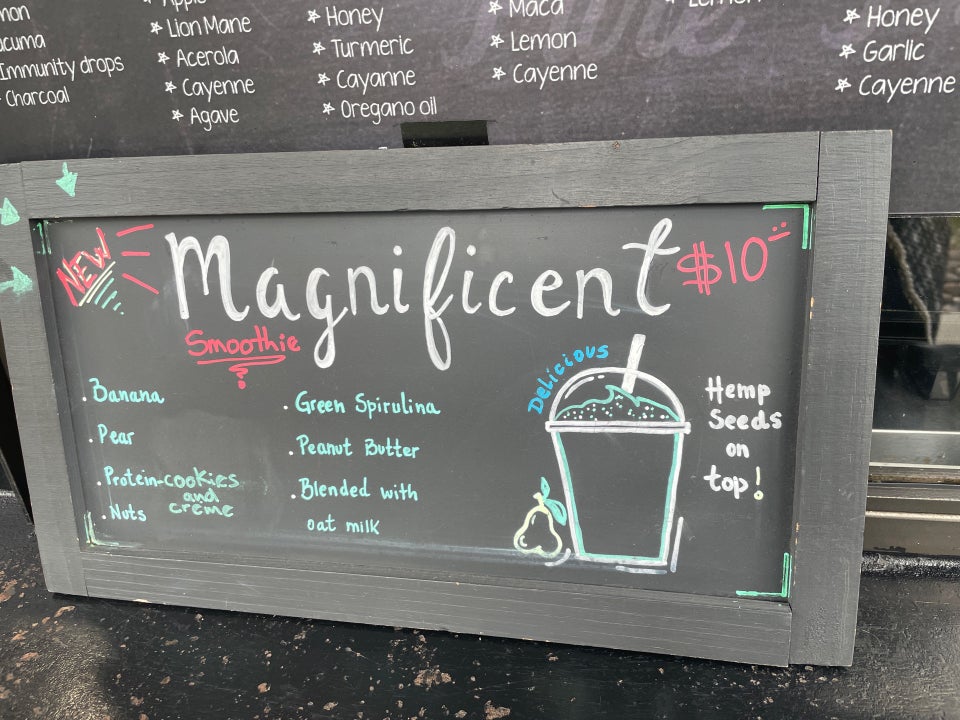 Lion Mane
Acerola
Cayenne
Agave
Honey
Turmeric
Cayanne
Oregano oil
Maca
Lemon
Cayenne
Honey
Garlic
Cayenne
Immunity drops
Charcoal
NEW
Magnificent
$10
Smoothie
Delicious
. Banana
. Pear
. Protein-cookies
and
creme
. Nuts
. Green Spirulina
. Peanut Butter
. Blended with
oat milk
Hemp
Seeds
on
top!